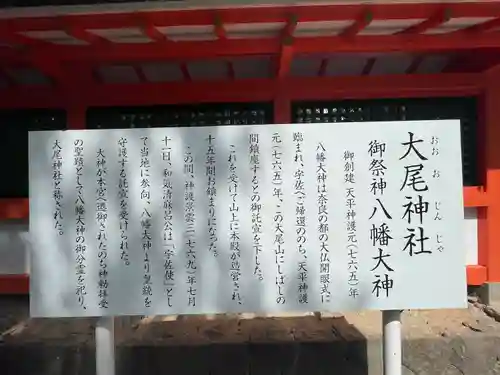 おおおじんじゃ
大尾神社
御祭神八幡大神
御創建 天平神護元(七六五)年
八幡大神は奈良の都の大仏開眼式に
臨まれ、宇佐へご帰還ののち、天平神護
元(七六五)年、この大尾山にしばしの
間鎮座するとの御託宣を下した。
これを受けて山上に本殿が造俗され、
十五年間お鎮まりになった。
この間、神護景雲三(七六九)年七月
十一日、和気清麻呂公は「宇佐使」とし
て当地に参向、八幡大神より皇統を
守護する託宣を受けられた。
大神が本宮へ遷御されたのち神勅拝受
の聖蹟として八幡大神の御分霊を祀り、
大尾神社と称された。